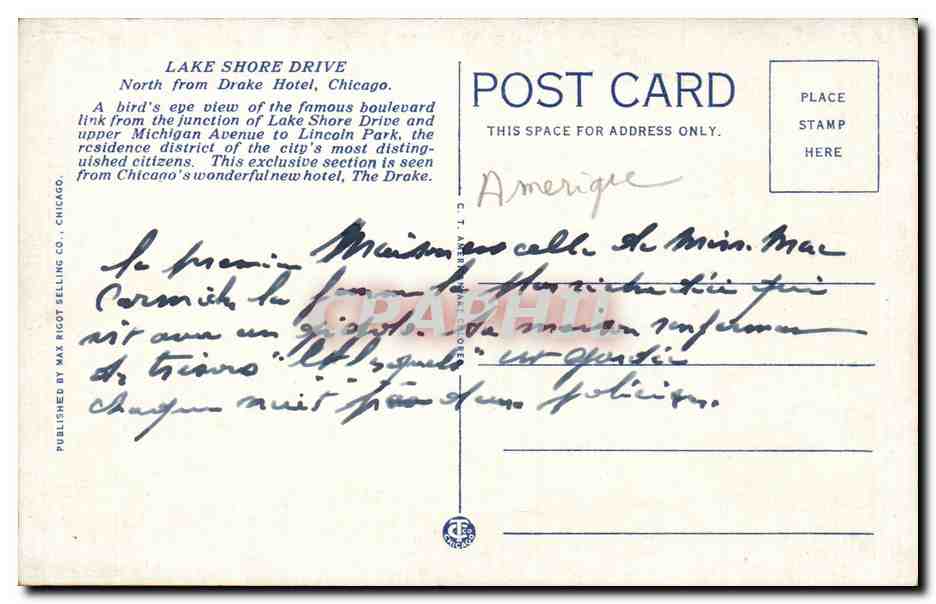 LAKE SHORE DRIVE
North from Drake Hotel, Chicago.
A bird's eye view of the famous boulevard
link from the junction of Lake Shore Drive and
upper Michigan Avenue to Lincoln Park, the
residence district of the city's most disting-
uished citizens. This exclusive section is seen
from Chicago's wonderful new hotel, The Drake.
PUBLISHED BY MAX RIGOT SELLING CO., CHICAGO.
POST CARD
THIS SPACE FOR ADDRESS ONLY.
PLACE
STAMP
HERE
Amerique
la première Maison est celle de Miss. Mac
Cormick la femme la plus riche d'ici qui
vit avec un . La maison renferme
de trésors est gardée
chaque nuit par deux policiers.
C. T. AMERICAN COLORED
CRAPHTI
CTCO
CHICAGO